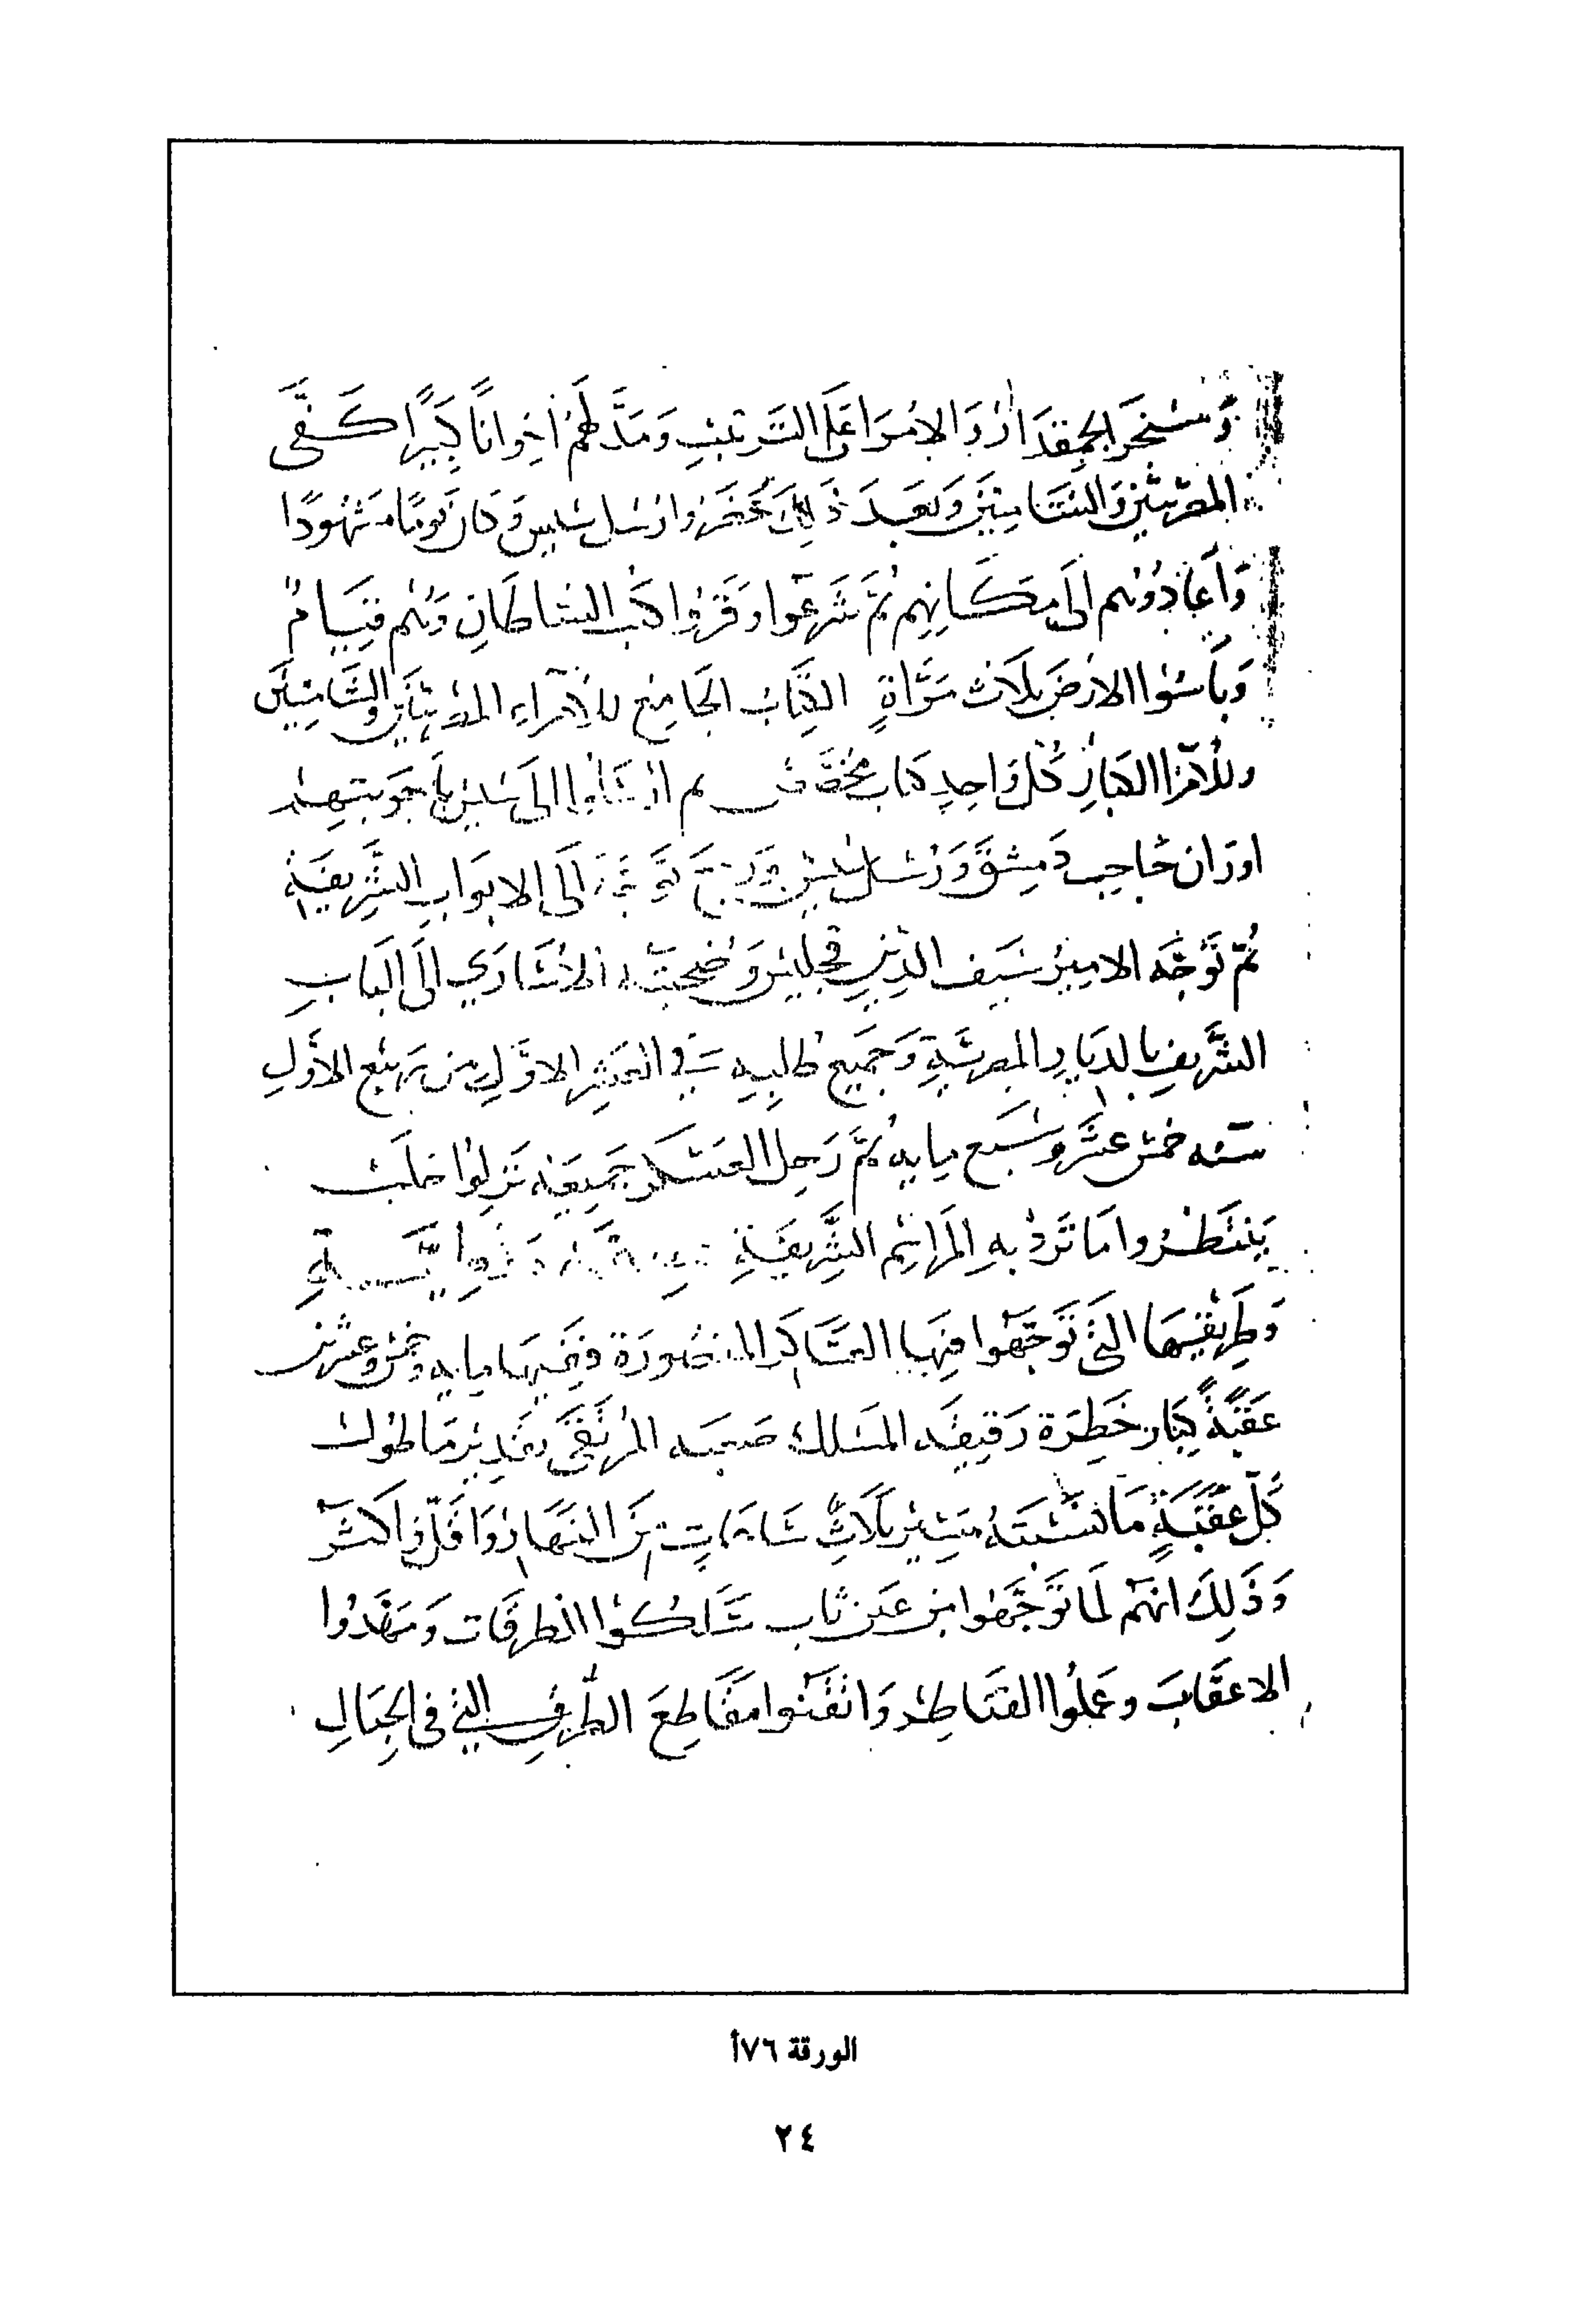 المقدار والامرا على الترتيب ومد لهم اخوانا كبيرا كفى
المصريين والشاميين وبعد ذلك حضروا رسل سيس وكان يوما مشهودا
واعادوهم الى مكانهم ثم شرعوا وقروا كتب السلطان وهم قيام
وباسوا الارض ثلاث مراة الكتاب الجامع للامراء المصريين والشاميين
وللامرا الكبار كل واحد كتاب مخصص ثم ارسلوا الى سيس باجوبتهم
حاجب دمشق ورسل سيس الى الابواب الشريفة
ثم توجه الامير سيف الدين قجليس وصحبته الاسارى الى الباب
الشريف بالديار المصرية وجميع طلبه في العشر الاول من ربيع الاول
سنه خمس عشر وسبع مايه ثم رحل العسكر جميعه نزلوا حلب
ينتظروا ما ترد به المراسم الشريفة
وطريقها التى توجهوا فيها العساكر المنصورة فيها مايه وخمس وعشرين
عقبة كبار خطرة رقيقه المسلك صعبه المرتقى تقدير ما طول
كل عقبة ما نسبته مسير ثلاث ساعات من النهار واقل واكثر
وذلك انهم لما توجهوا من عين تاب سلكوا الطرقات ومهدوا
الاعقاب وعملوا القناطر واتقنوا مقاطع الطرق التي في الجبال
الورقة ٧٦أ
٢٤